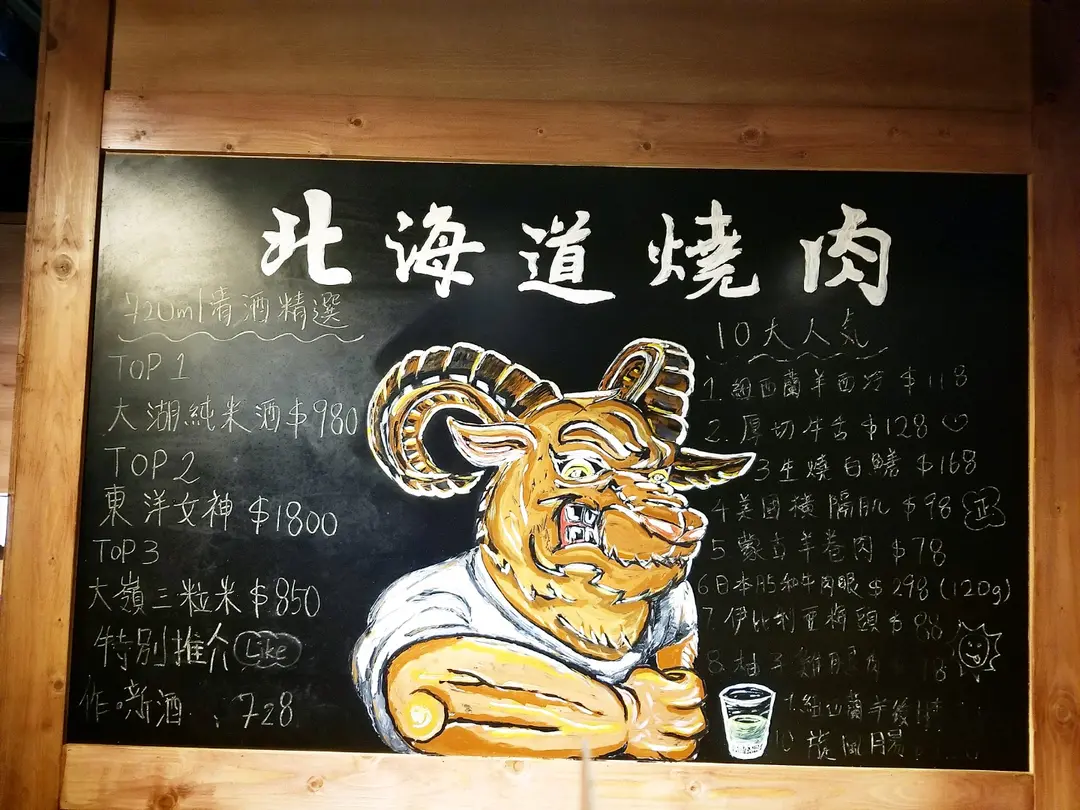 北海道燒肉
720ml清酒精選
TOP 1
大湖純米酒 $980
TOP 2
東洋女神 $1800
TOP 3
大嶺三粒米 $850
特別推介 Like
作 新酒 : 728
10大人気
1. 紐西蘭羊西冷 $118
2. 厚切牛舌 $128
3 生燒白鱔 $168
4 美國橫隔肌 $98
5 蒙古羊卷肉 $78
6 日本A5和牛肉眼 $298 (120g)
7. 伊比利亞梅頭 $88
8. 柚子雞 8
紐西蘭羊
10 旋風腸